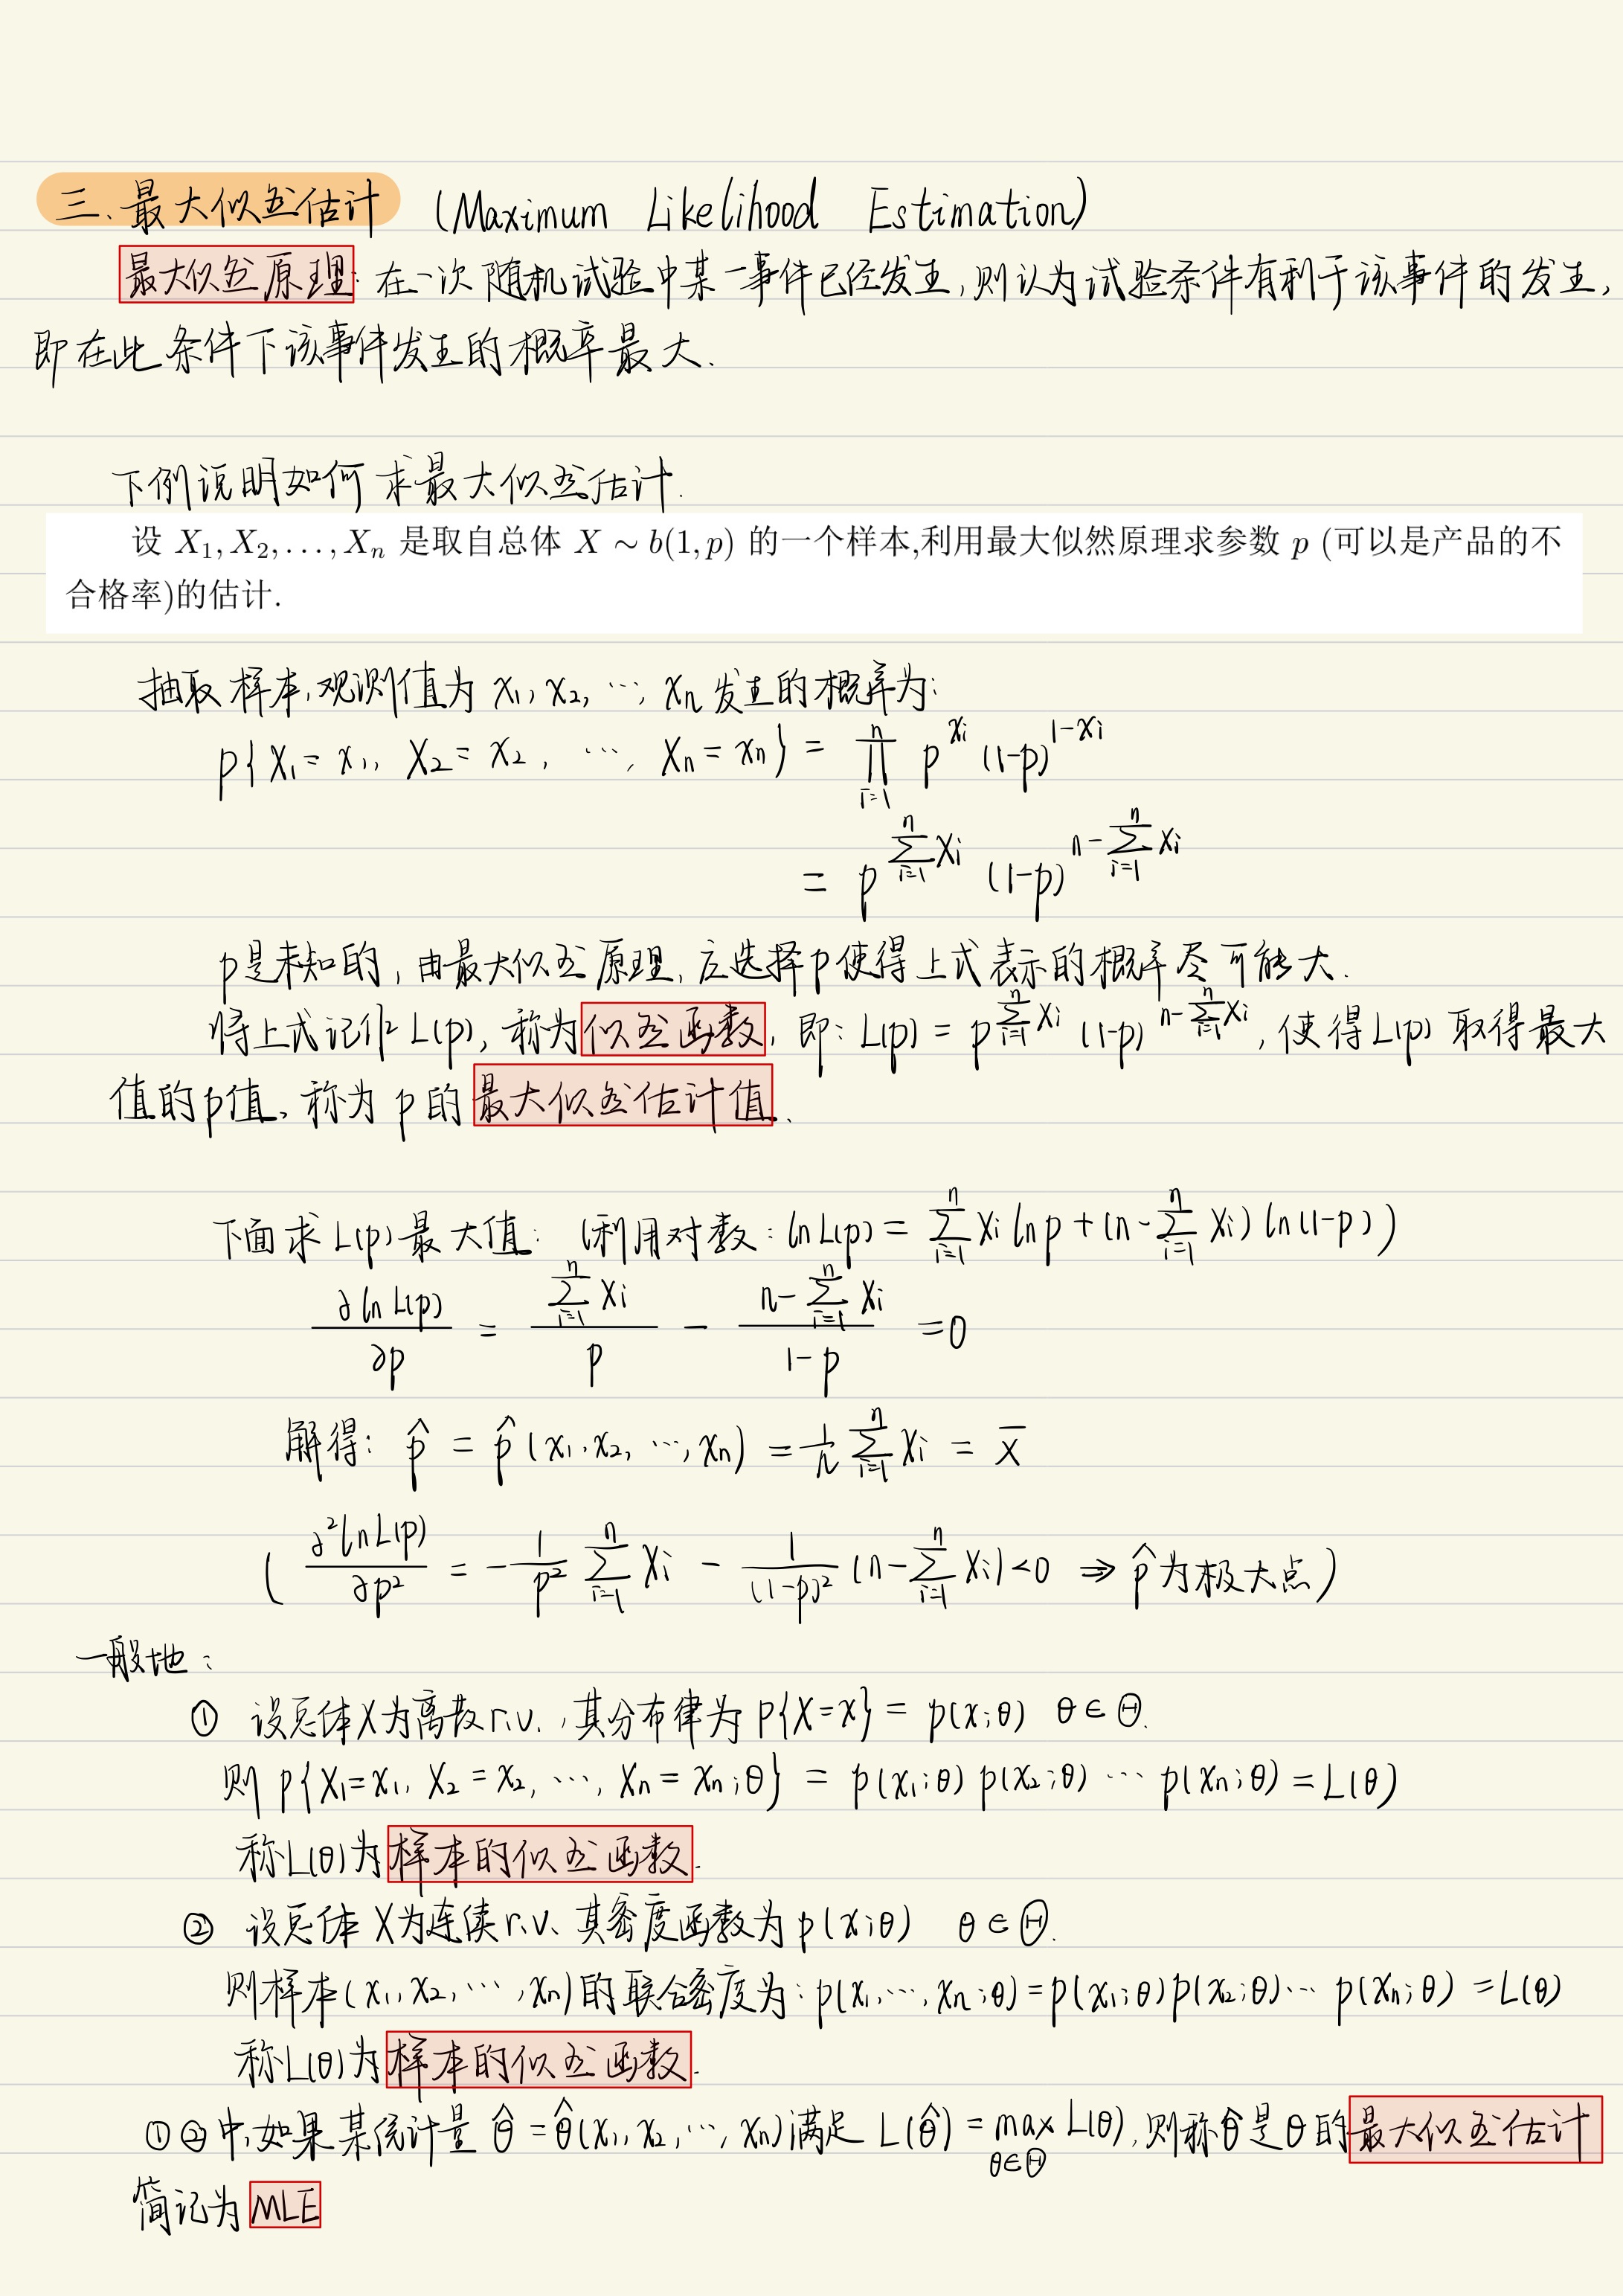 三.最大似然估计 (Maximum Likelihood Estimation)
最大似然原理: 在一次随机试验中某一事件已经发生,则认为试验条件有利于该事件的发生,
即在此条件下该事件发生的概率最大.
下例说明如何求最大似然估计.
设 X₁, X₂, . . . , Xₙ 是取自总体 X ∼ b(1, p) 的一个样本,利用最大似然原理求参数 p (可以是产品的不
合格率)的估计.
抽取样本,观测值为 x₁, x₂, ⋯, xₙ 发生的概率为:
p{X₁ = x₁, X₂ = x₂, ⋯, Xₙ = xₙ} = ∏_{i=1}^{n} p^{xᵢ} (1-p)^{1-xᵢ}
= p^{∑_{i=1}^{n} xᵢ} (1-p)^{n-∑_{i=1}^{n} xᵢ}
p是未知的, 由最大似然原理, 应选择p使得上式表示的概率尽可能大.
将上式记作 L(p), 称为似然函数, 即: L(p) = p^{∑_{i=1}^{n} xᵢ} (1-p)^{n-∑_{i=1}^{n} xᵢ}, 使得L(p) 取得最大
值的p值, 称为 p 的最大似然估计值.
下面求 L(p) 最大值: (利用对数: ln L(p) = ∑_{i=1}^{n} xᵢ ln p + (n-∑_{i=1}^{n} xᵢ) ln (1-p))
∂ ln L(p)/∂p = ∑_{i=1}^{n} xᵢ/p - (n-∑_{i=1}^{n} xᵢ)/(1-p) = 0
解得: p̂ = p̂ (x₁, x₂, ⋯, xₙ) = 1/n ∑_{i=1}^{n} xᵢ = x̄
(∂² ln L(p)/∂p² = -1/p² ∑_{i=1}^{n} xᵢ - 1/(1-p)² (n-∑_{i=1}^{n} xᵢ) < 0 ⇒ p̂ 为极大点)
一般地:
① 设总体X为离散r.v., 其分布律为 P{X=x} = p(x;θ) θ∈Θ.
则 p{X₁=x₁, X₂=x₂, ⋯, Xₙ=xₙ;θ} = p(x₁;θ) p(x₂;θ) ⋯ p(xₙ;θ) = L(θ)
称L(θ)为样本的似然函数.
② 设总体 X为连续r.v. 其密度函数为 p(x;θ) θ∈Θ.
则样本(x₁, x₂, ⋯, xₙ)的联合密度为: p(x₁, ⋯, xₙ;θ) = p(x₁;θ)p(x₂;θ)⋯ p(xₙ;θ) = L(θ)
称L(θ)为样本的似然函数.
①②中,如果某统计量 θ̂ = θ̂(x₁, x₂, ⋯, xₙ)满足 L(θ̂) = max_{θ∈Θ} L(θ), 则称θ̂是θ的最大似然估计
简记为 MLE